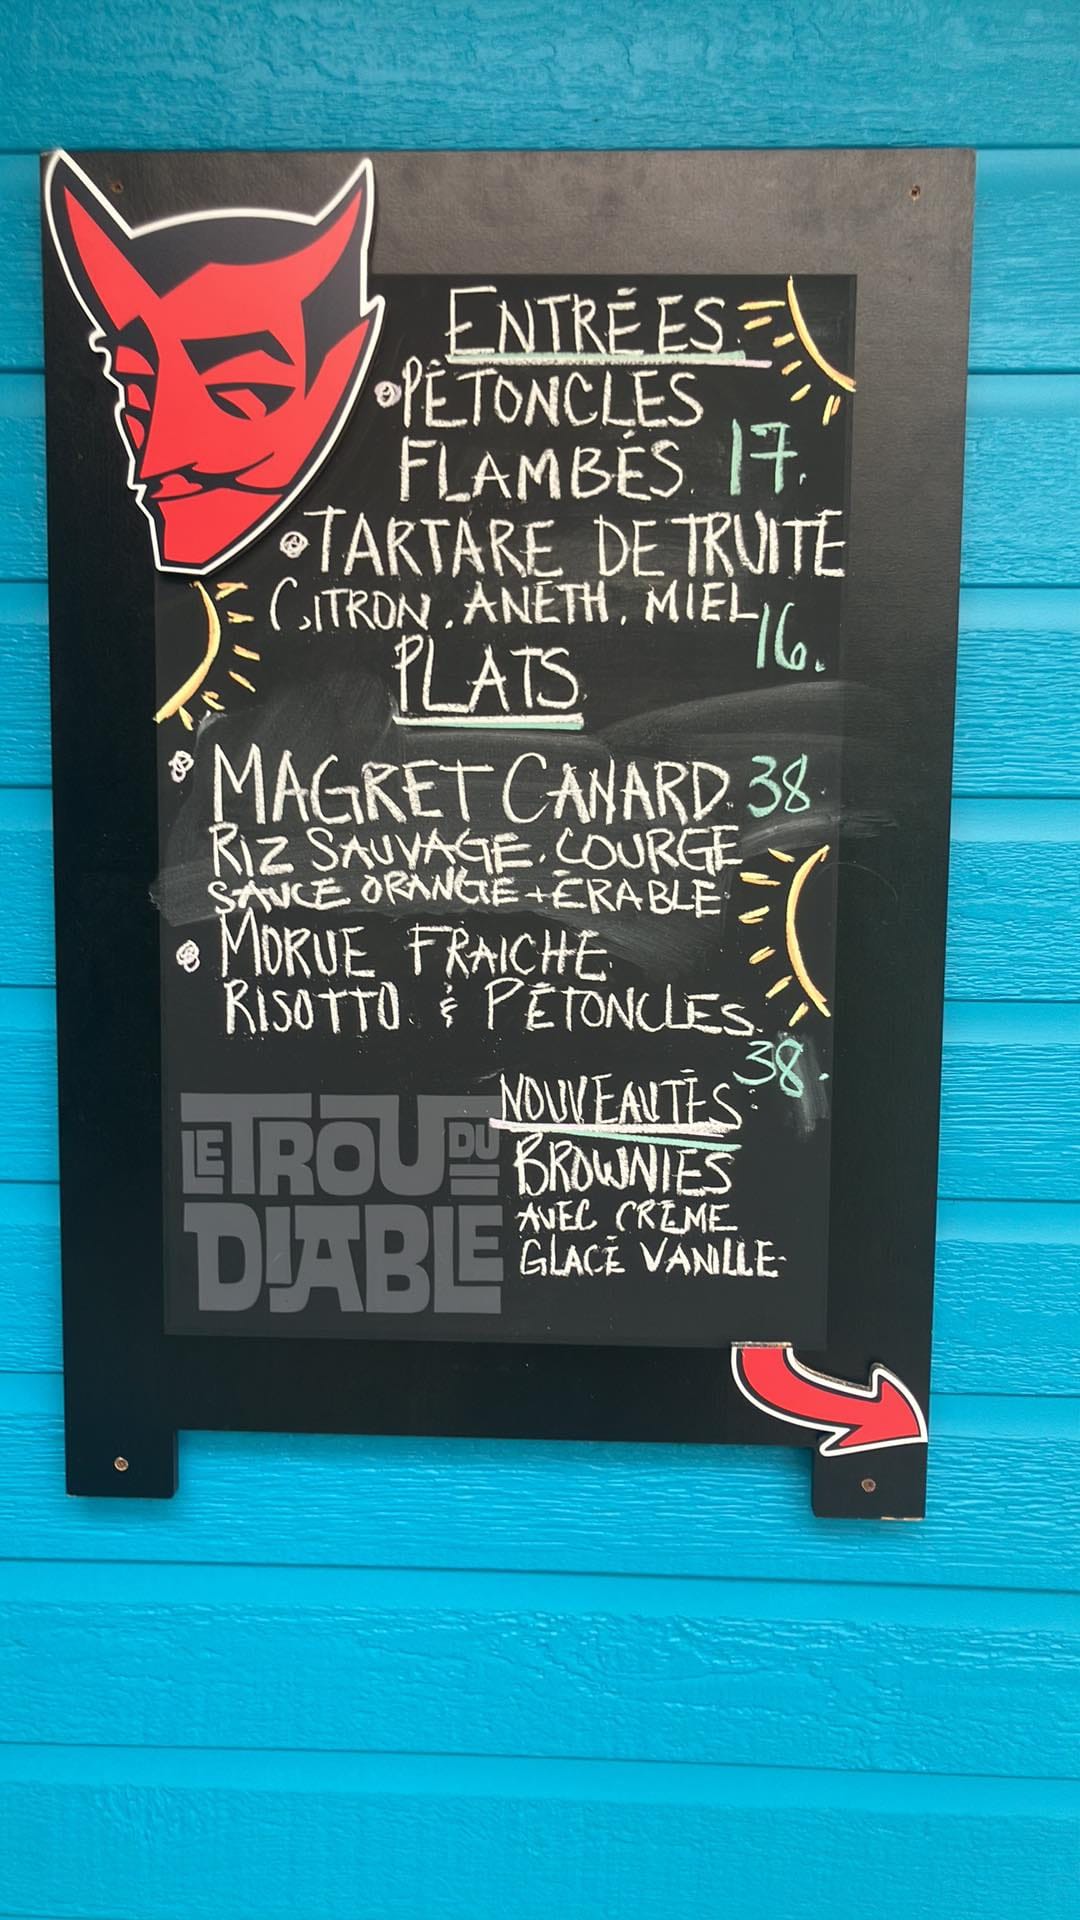 ENTRÉES
PÉTONCLES
FLAMBÉS. 17.
TARTARE DE TRUITE
CITRON, ANETH, MIEL
16.
PLATS
MAGRET CANARD. 38.
RIZ SAUVAGE. COURGE
SAUCE ORANGE + ÉRABLE
MORUE FRAICHE
RISOTTO & PÉTONCLES.
38.
NOUVEAUTÉS
BROWNIES
AVEC CRÈME
GLACÉ VANILLE
LE TROU DU
DIABLE